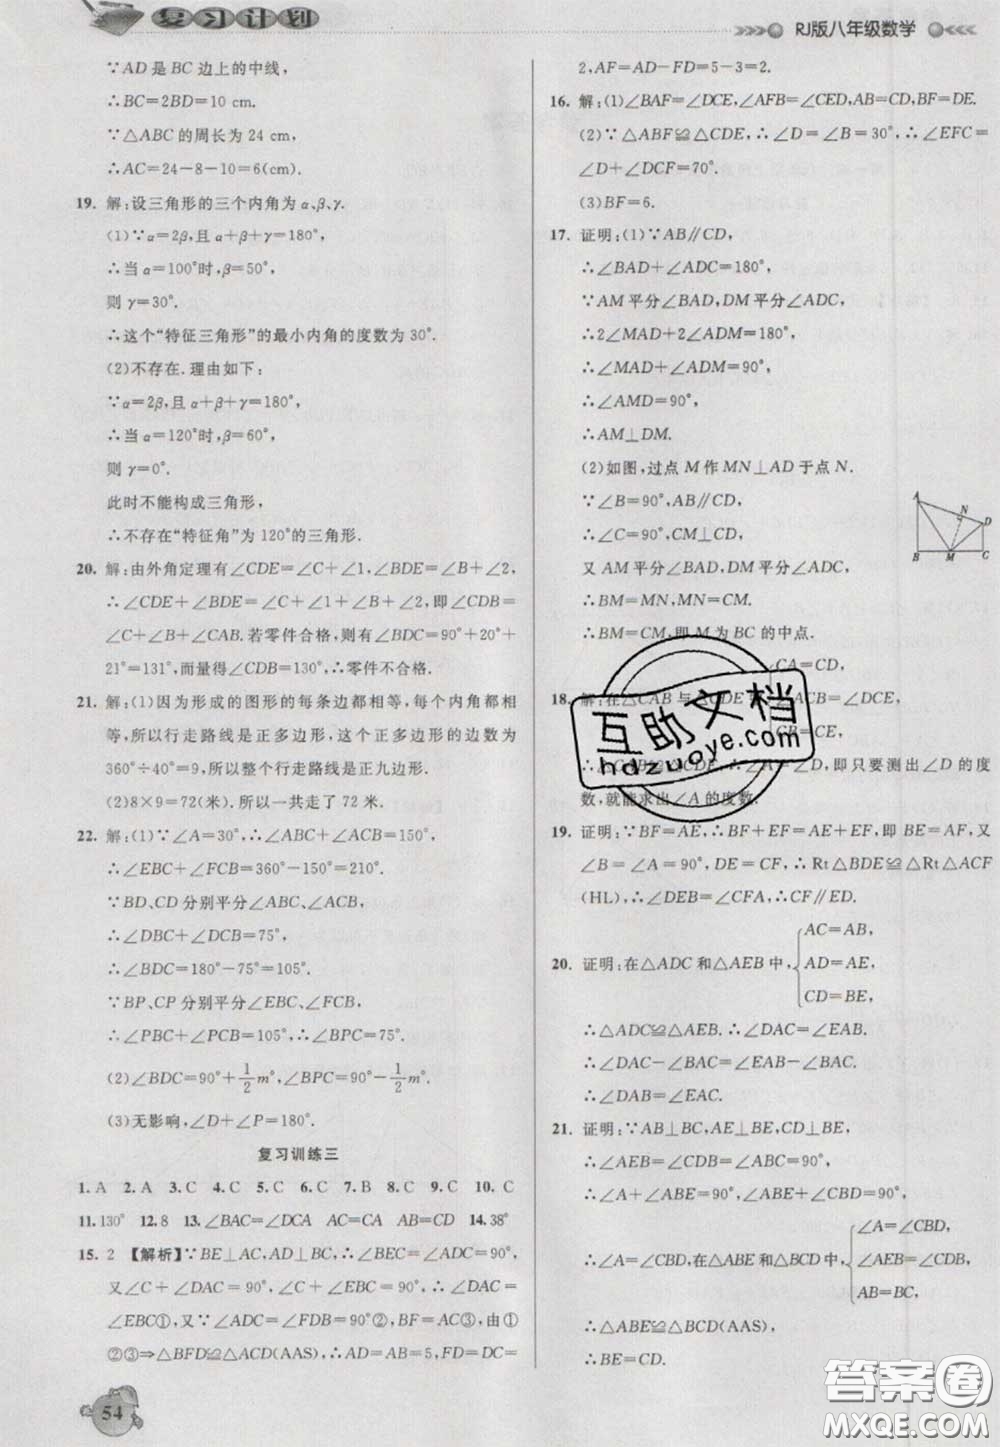 复习计划
RJ版八年级数学
∵AD 是 BC 边上的中线,
∴BC=2BD=10 cm.
∵△ABC 的周长为 24 cm,
∴AC=24-8-10=6(cm).
19. 解:设三角形的三个内角为 α、β、γ.
(1)∵α=2β,且 α+β+γ=180°,
∴当 α=100°时,β=50°,
则 γ=30°.
∴这个“特征三角形”的最小内角的度数为 30°.
(2)不存在.理由如下:
∵α=2β,且 α+β+γ=180°,
∴当 α=120°时,β=60°,
则 γ=0°.
此时不能构成三角形,
∴不存在“特征角”为 120°的三角形.
20. 解:由外角定理有∠CDE=∠C+∠1,∠BDE=∠B+∠2,
∴∠CDE+∠BDE=∠C+∠1+∠B+∠2,即∠CDB=
∠C+∠B+∠CAB.若零件合格,则有∠BDC=90°+20°+
21°=131°,而量得∠CDB=130°.∴零件不合格.
21. 解:(1)因为形成的图形的每条边都相等,每个内角都相
等,所以行走路线是正多边形,这个正多边形的边数为
360°÷40°=9,所以整个行走路线是正九边形.
(2)8×9=72(米).所以一共走了 72 米.
22. 解:(1)∵∠A=30°,∴∠ABC+∠ACB=150°,
∴∠EBC+∠FCB=360°-150°=210°.
∵BD、CD 分别平分∠ABC、∠ACB,
∴∠DBC+∠DCB=75°,
∴∠BDC=180°-75°=105°.
∵BP、CP 分别平分∠EBC、∠FCB,
∴∠PBC+∠PCB=105°,∴∠BPC=75°.
(2)∠BDC=90°+1/2m°,∠BPC=90°-1/2m°.
(3)无影响,∠D+∠P=180°.
复习训练三
1. A 2. A 3. C 4. C 5. C 6. C 7. B 8. C 9. C 10. C
11. 130° 12. 8 13. ∠BAC=∠DCA AC=CA AB=CD 14. 38°
15. 2 【解析】∵BE⊥AC,AD⊥BC,∴∠BEC=∠ADC=90°,
又∠C+∠DAC=90°,∠C+∠EBC=90°,∴∠DAC=
∠EBC①,又∵∠ADC=∠FDB=90°②,BF=AC③,由①
②③⇒△BFD≌△ACD(AAS),∴AD=BD=5,FD=DC=
54
2,AF=AD-FD=5-3=2.
16. 解:(1)∠BAF=∠DCE,∠AFB=∠CED,AB=CD,BF=DE.
(2)∵△ABF≌△CDE,∴∠D=∠B=30°,∴∠EFC=
∠D+∠DCF=70°.
(3)BF=6.
17. 证明:(1)∵AB∥CD,
∴∠BAD+∠ADC=180°,
∵AM 平分∠BAD,DM 平分∠ADC,
∴2∠MAD+2∠ADM=180°,
∴∠MAD+∠ADM=90°,
∴∠AMD=90°,
∴AM⊥DM.
(2)如图,过点 M 作 MN⊥AD 于点 N.
∵∠B=90°,AB∥CD,
∴∠C=90°,CM⊥CD,
又 AM 平分∠BAD,DM 平分∠ADC,
∴BM=MN,MN=CM.
∴BM=CM,即 M 为 BC 的中点.
A N D B M C
18. 解:在△CAB 与△CDE 中,
CA=CD,
∠ACB=∠DCE,
CB=CE,
∴△CAB≌△CDE,∴∠A=∠D,即只要测出∠D 的度
数,就能求出∠A 的度数.
19. 证明:∵BF=AE,∴BF+EF=AE+EF,即 BE=AF,又
∠B=∠A=90°,DE=CF,∴Rt△BDE≌Rt△ACF
(HL),∴∠DEB=∠CFA,∴CF∥ED.
20. 证明:在△ADC 和△AEB 中,
AC=AB,
AD=AE,
CD=BE,
∴△ADC≌△AEB.∴∠DAC=∠EAB.
∴∠DAC-∠BAC=∠EAB-∠BAC.
∴∠DAB=∠EAC.
21. 证明:∵AB⊥BC,AE⊥BE,CD⊥BE,
∴∠AEB=∠CDB=∠ABC=90°,
∴∠A+∠ABE=90°,∠ABE+∠CBD=90°,
∴∠A=∠CBD,在△ABE 和△BCD 中,
∠A=∠CBD,
∠AEB=∠CDB,
AB=BC,
∴△ABE≌△BCD(AAS),
∴BE=CD.
互助文档
hdzuoye.com
答案圈
MXQE.COM